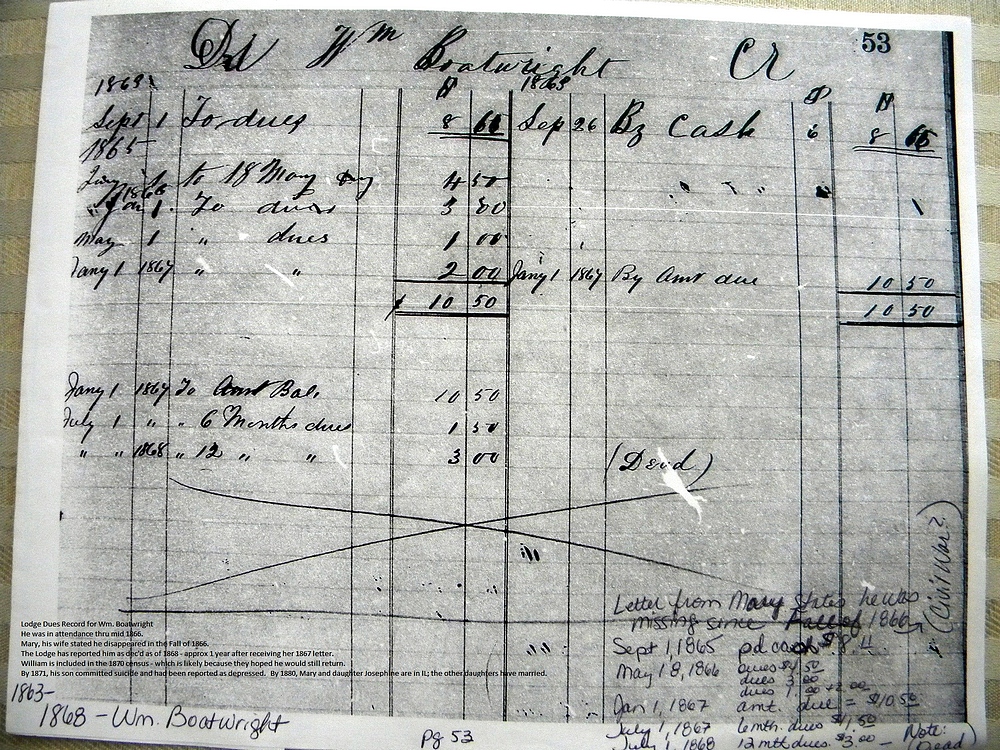 Dr Wm Boatwright Cr 53
1863 1863
Sept 1 To dues 8 Sep 26 By Cash 6 8
1865
to 18 May 4 50
1866
Jan 1. To dues 3 00
May 1 " dues 1 00
Jany 1 1867 " " 2 00 Jany 1 1867 By Amt due 10 50
10 50 10 50
Jany 1 1867 To Amt Bal. 10 50
July 1 " " 6 Months dues 1 50
" " 1868 " 12 " " 3 00 (Dead)
(Civil War?)
Letter from Mary states he was
missing since Fall of 1866
Sept 1, 1865 pd cash $8
May 18, 1866 dues $4.50
dues 3.00
dues 1.00 + 2.00
Jan 1, 1867 amt. due = $10.50
July 1, 1867 6 mth. dues $1.50
July 1, 1868 12 mth dues $3.00 Note:
Lodge Dues Record for Wm. Boatwright
He was in attendance thru mid 1866.
Mary, his wife stated he disappeared in the Fall of 1866.
The Lodge has reported him as dec'd as of 1868 - approx 1 year after receiving her 1867 letter.
William is included in the 1870 census - which is likely because they hoped he would still return.
By 1871, his son committed suicide and had been reported as depressed. By 1880, Mary and daughter Josephine are in IL; the other daughters have married.
1863-
1868 - Wm. Boatwright
pg 53